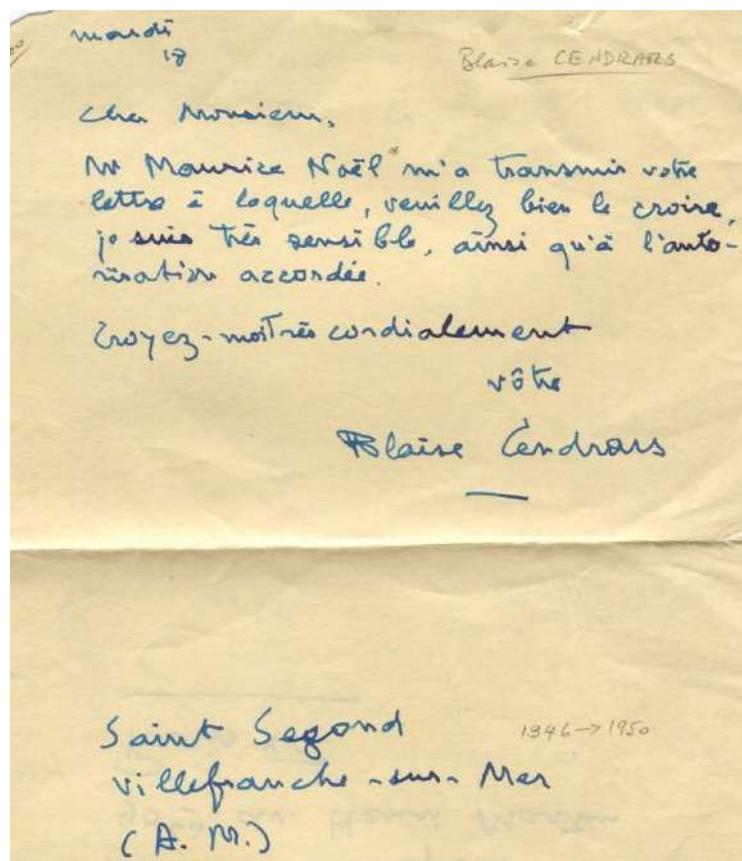 mardi
Blaise CENDRARS
Cher Monsieur,
Mr Maurice Noël m'a transmis votre
lettre à laquelle, veuillez bien le croire,
je suis très sensible, ainsi qu'à l'auto-
risation accordée.
Croyez-moi très cordialement
vôtre
Blaise Cendrars
Saint Segond
1946→1950
Villefranche-sur-Mer
(A.M.)